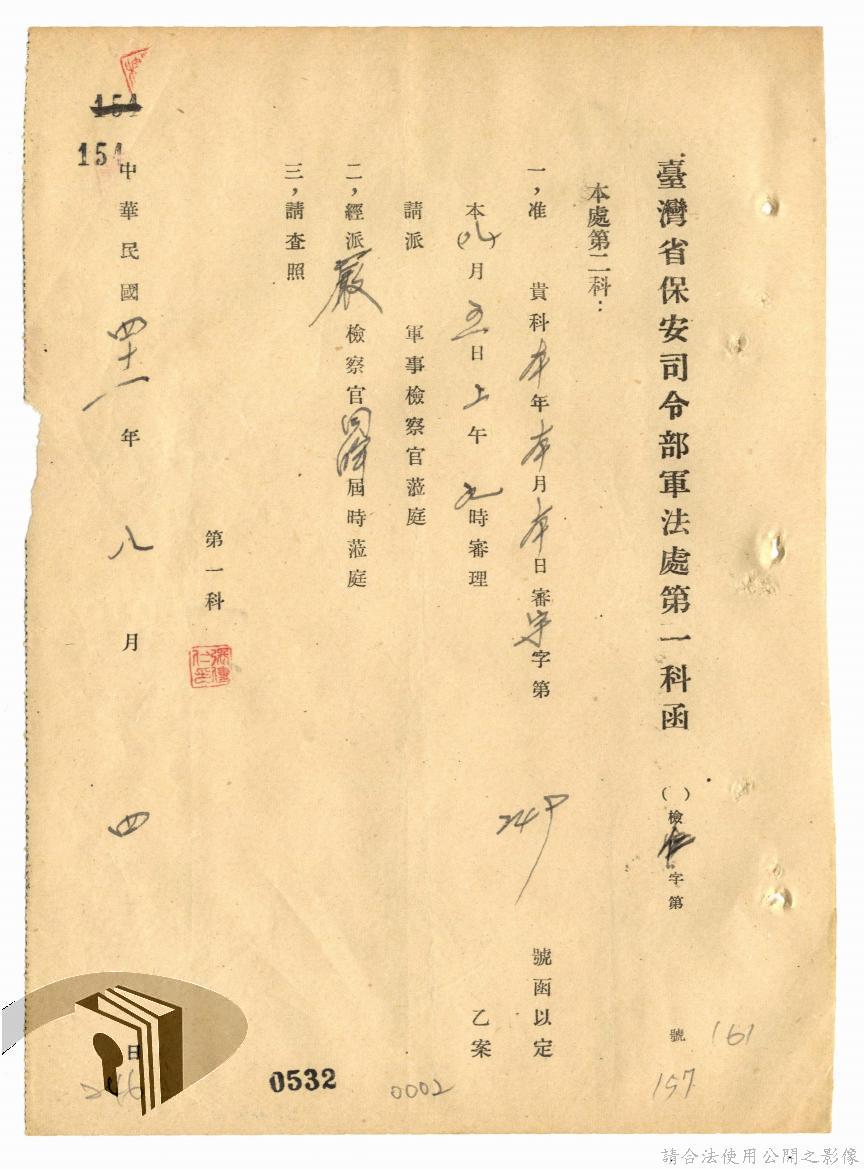 臺灣省保安司令部軍法處第一科函
( )檢 字第 號
本處第二科：
一，准 貴科本年本月本日審 字第 號函以定
本(八)月五日上午九時審理 乙案
請派 軍事檢察官蒞庭
二，經派嚴 檢察官 屆時蒞庭
三，請查照
第一科
中華民國四十一年八月四日
154
154
161
157
0532
0002
246
請合法使用公開之影像